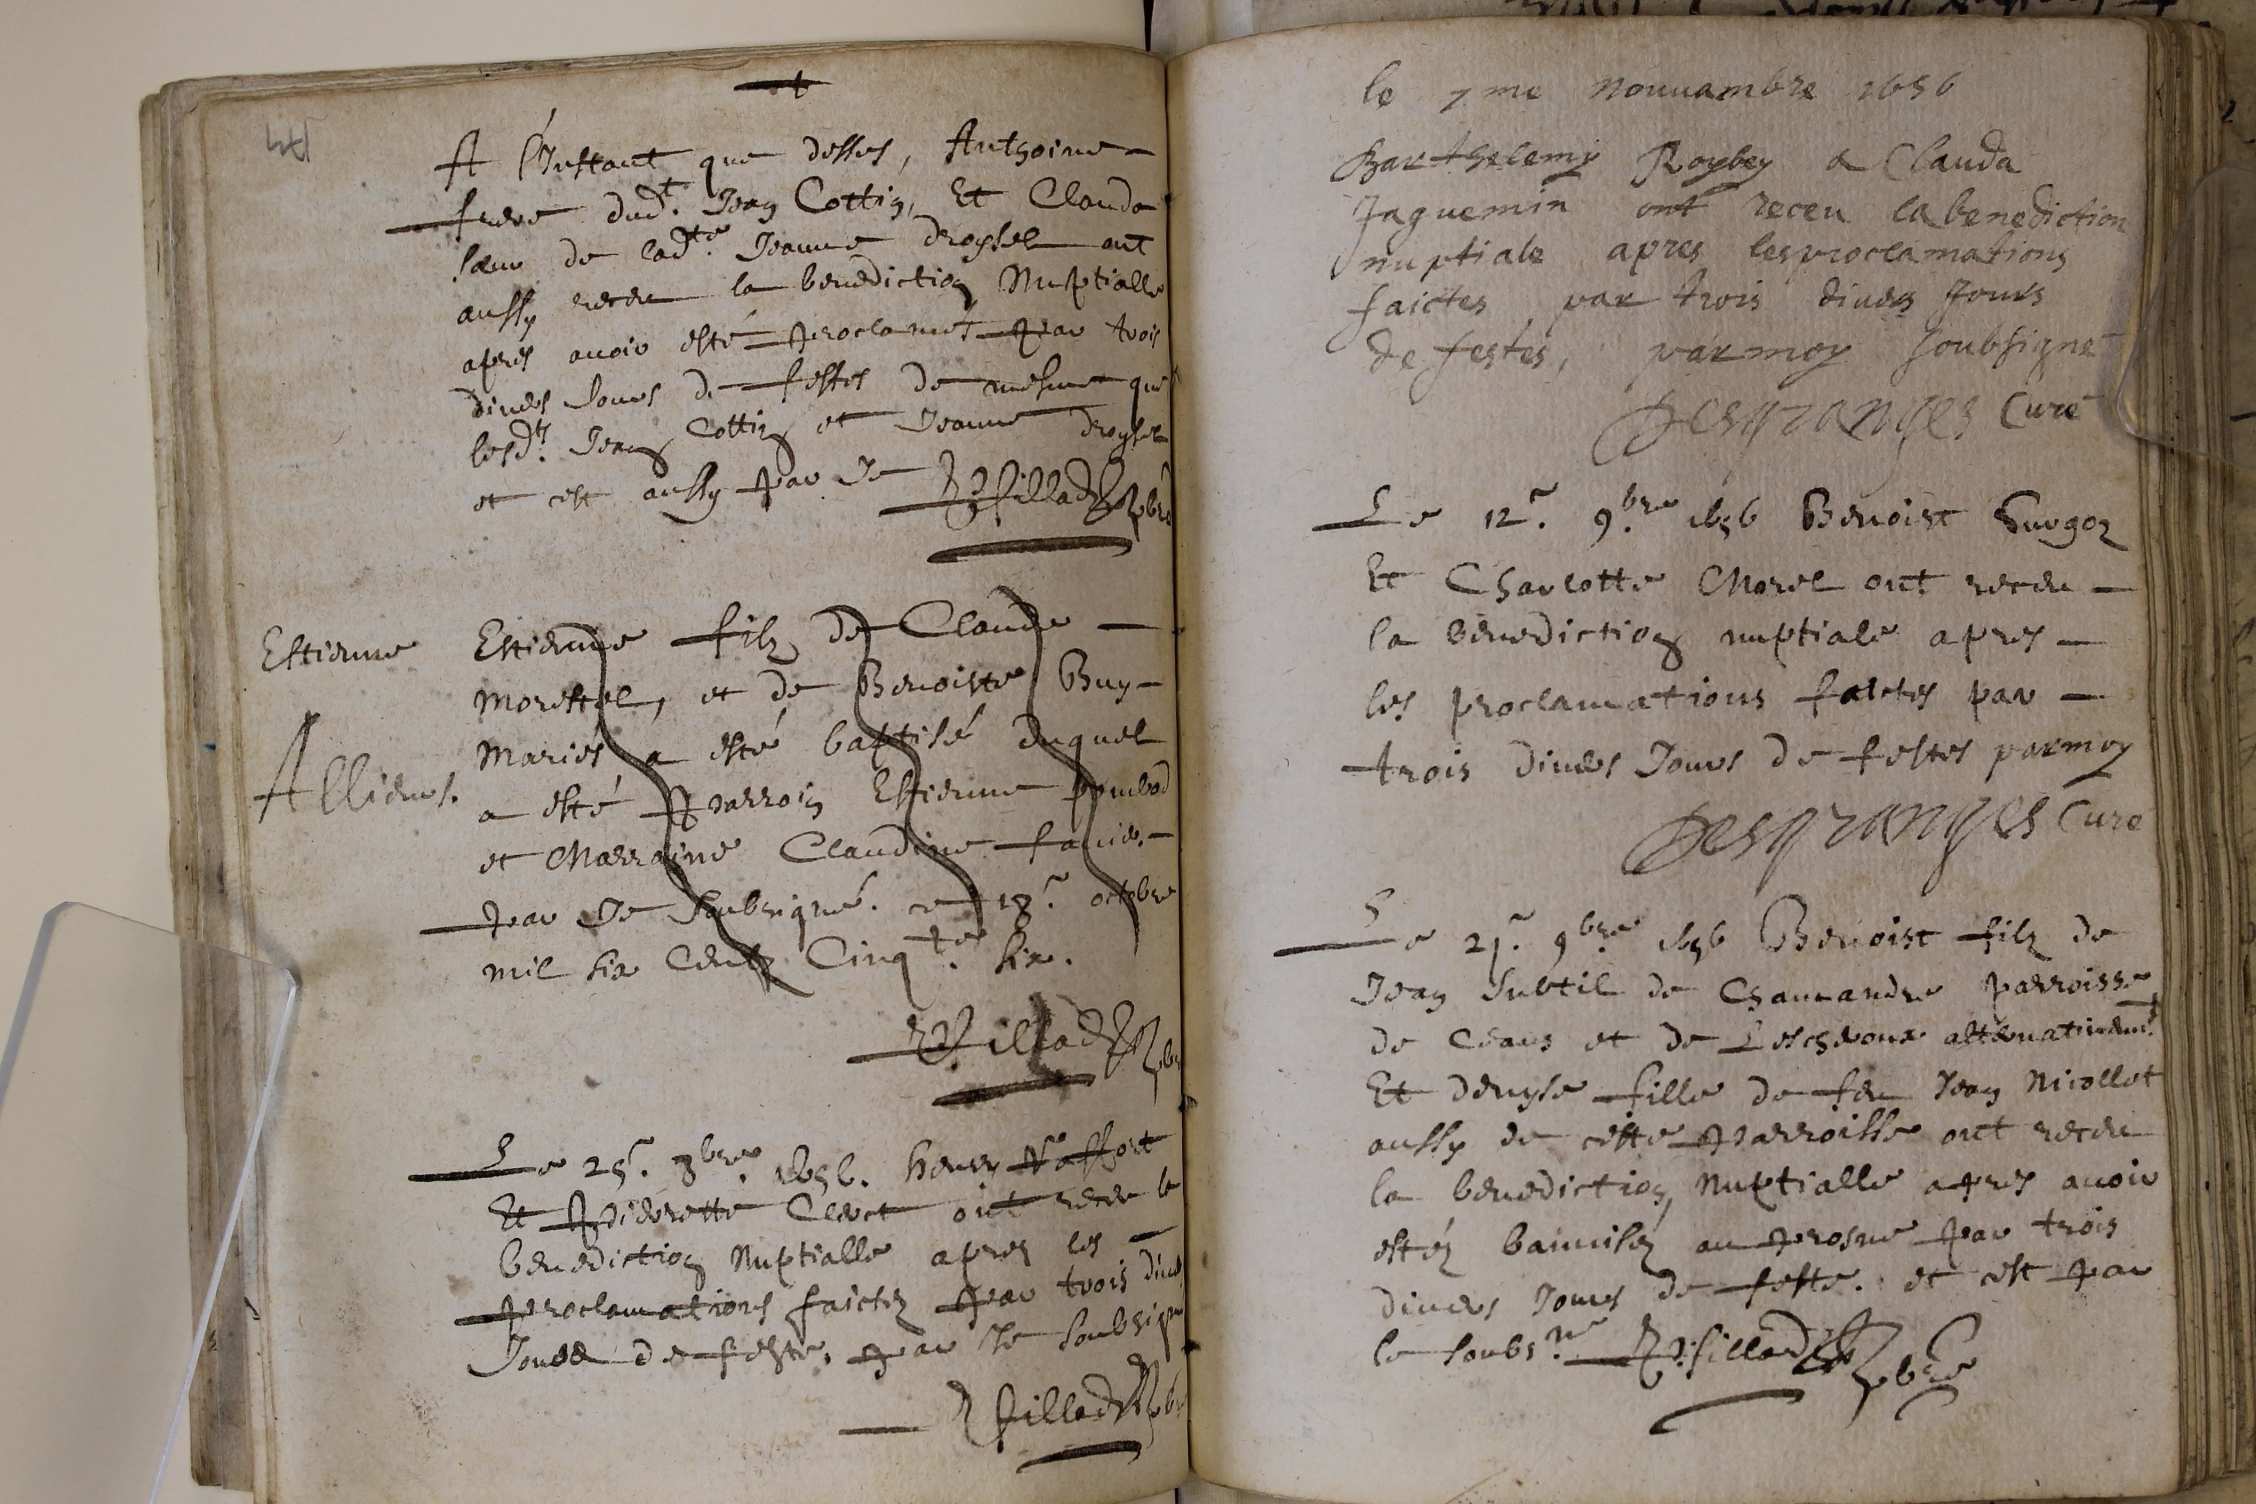 A l'Instant que dessus, Anthoine
frere dud.t Jean Cottin, Et Clauda
soeur de lad.te Jeanne droysel ont
aussy receu la benediction Nuptialle
apres avoir esté proclamés par trois
divers Jours de festes de mesme que
lesd.ts Jean Cottin et Jeanne droysel
et cest aussy par Je
Estienne
Alliens.
Estienne filz de Claude
morestel, et de Benoiste Buy
Mariés a esté baptisé duquel
a esté parroin Estienne
et Marraine Claudine
par Je Soubsigné. ce 18.e octobre
mil six Centz Cinq.te six.
Le 25.e 8.bre 1656. henry
Et pierrette Clerct ont receu la
benediction Nuptialle apres les
proclamations faictez par trois
Jours de feste, par Je soubsigné
le 7me Nouuambre 1656
Barthelemy Roybey & Clauda
Jaguemin ont receu la benediction
nuptiale apres les proclamations
faictes par trois divers Jours
de festes, par moy soubsigne
Desgranges Curé
Le 12.e 9.bre 1656 Benoist
Et Charlotte Morel ont receu
la benediction nuptiale apres
les proclamations faictes par
trois divers Jours de festes par moy
Desgranges Curé
Le 21.e 9.bre 1656 Benoist filz de
Jean Subtil de Chamandre parroisse
de et de Lescheroux alternativem.t
Et denyse fille de feu Jean Nicollet
aussy de cette parroisse ont receu
la benediction Nuptialle apres avoir
estéz au prosne par trois
divers Jours de feste. et cest par
le soubs.né